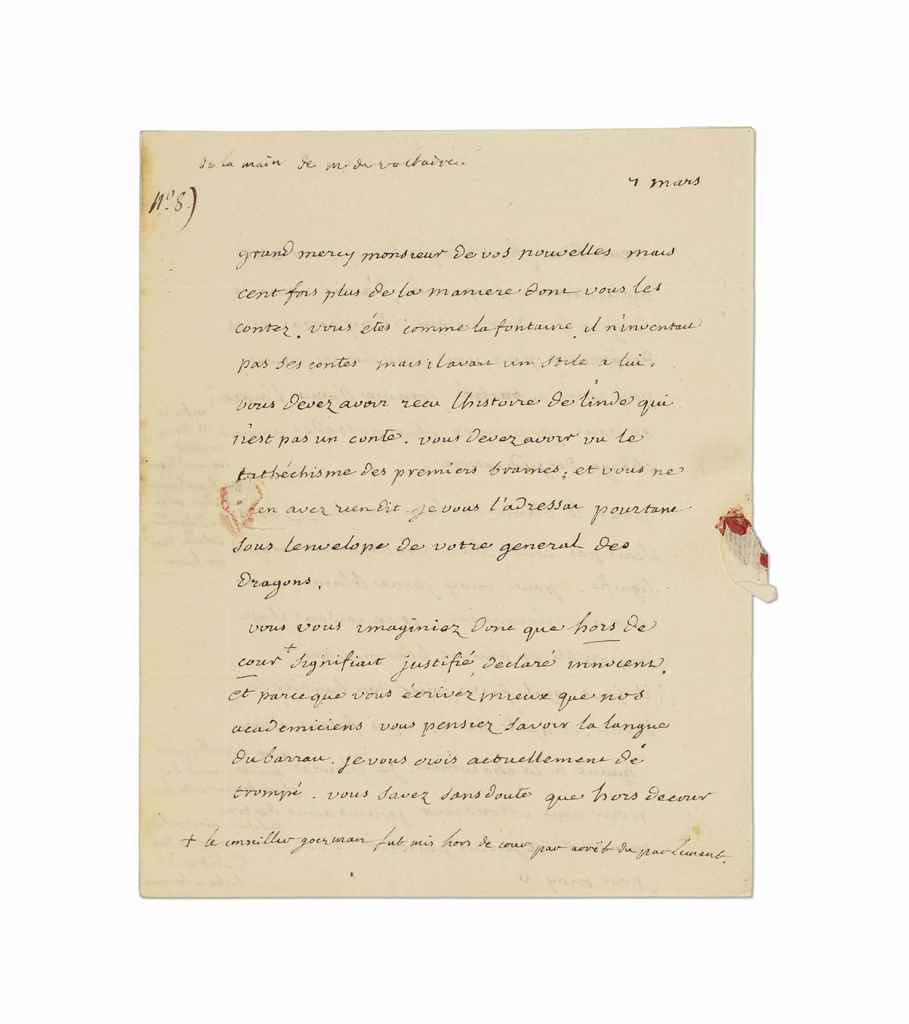 de la main de m de voltaire.
7 mars
N.º 8.)
grand mercy monsieur de vos nouvelles mais
cent fois plus de la maniere dont vous les
contez. vous êtes comme la fontaine, il n'inventait
pas ses contes mais il avait un stile a lui.
vous devez avoir recu l'histoire de l'inde qui
n'est pas un conte. vous devez avoir vu le
cathéchisme des premiers brames; et vous ne
m'en avez rien dit. je vous l'adressai pourtant
sous l'envelope de votre general des
dragons.
vous vous imaginiez donc que hors de
cour + signifiait justifié, declaré innocent,
et parce que vous écrivez mieux que nos
academiciens vous pensiez savoir la langue
du barrau. je vous crois actuellement dé
trompé. vous savez sans doute que hors de cour
+ le conseiller goezman fut mis hors de cour par arrêt du parlement.